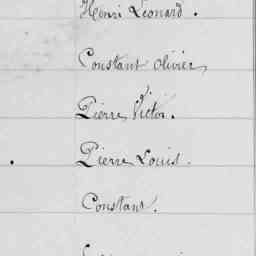 Henri Léonard.
Constant Olivier
Pierre Victor.
Pierre Louis.
Constant.